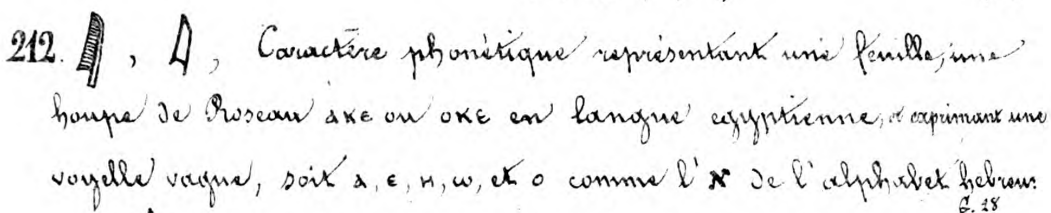 212. 𓇋, 𓇋, Caractère phonétique représentant une feuille, une
houpe de Roseau ⲁⲕⲉ ou ⲟⲕⲉ en langue egyptienne, et exprimant une
voyelle vague, soit ⲁ, ⲉ, ⲏ, ⲱ, et ⲟ comme l'א de l'alphabet hebreu:
G. 28